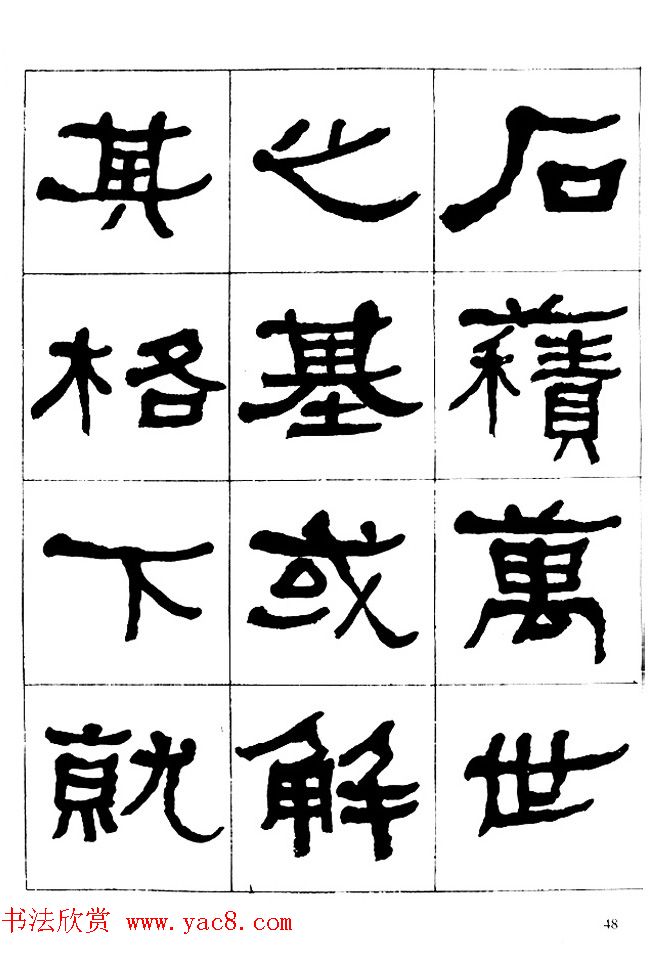 石𧂐萬世
之基或解
其格下就
书法欣赏 www.yac8.com
48